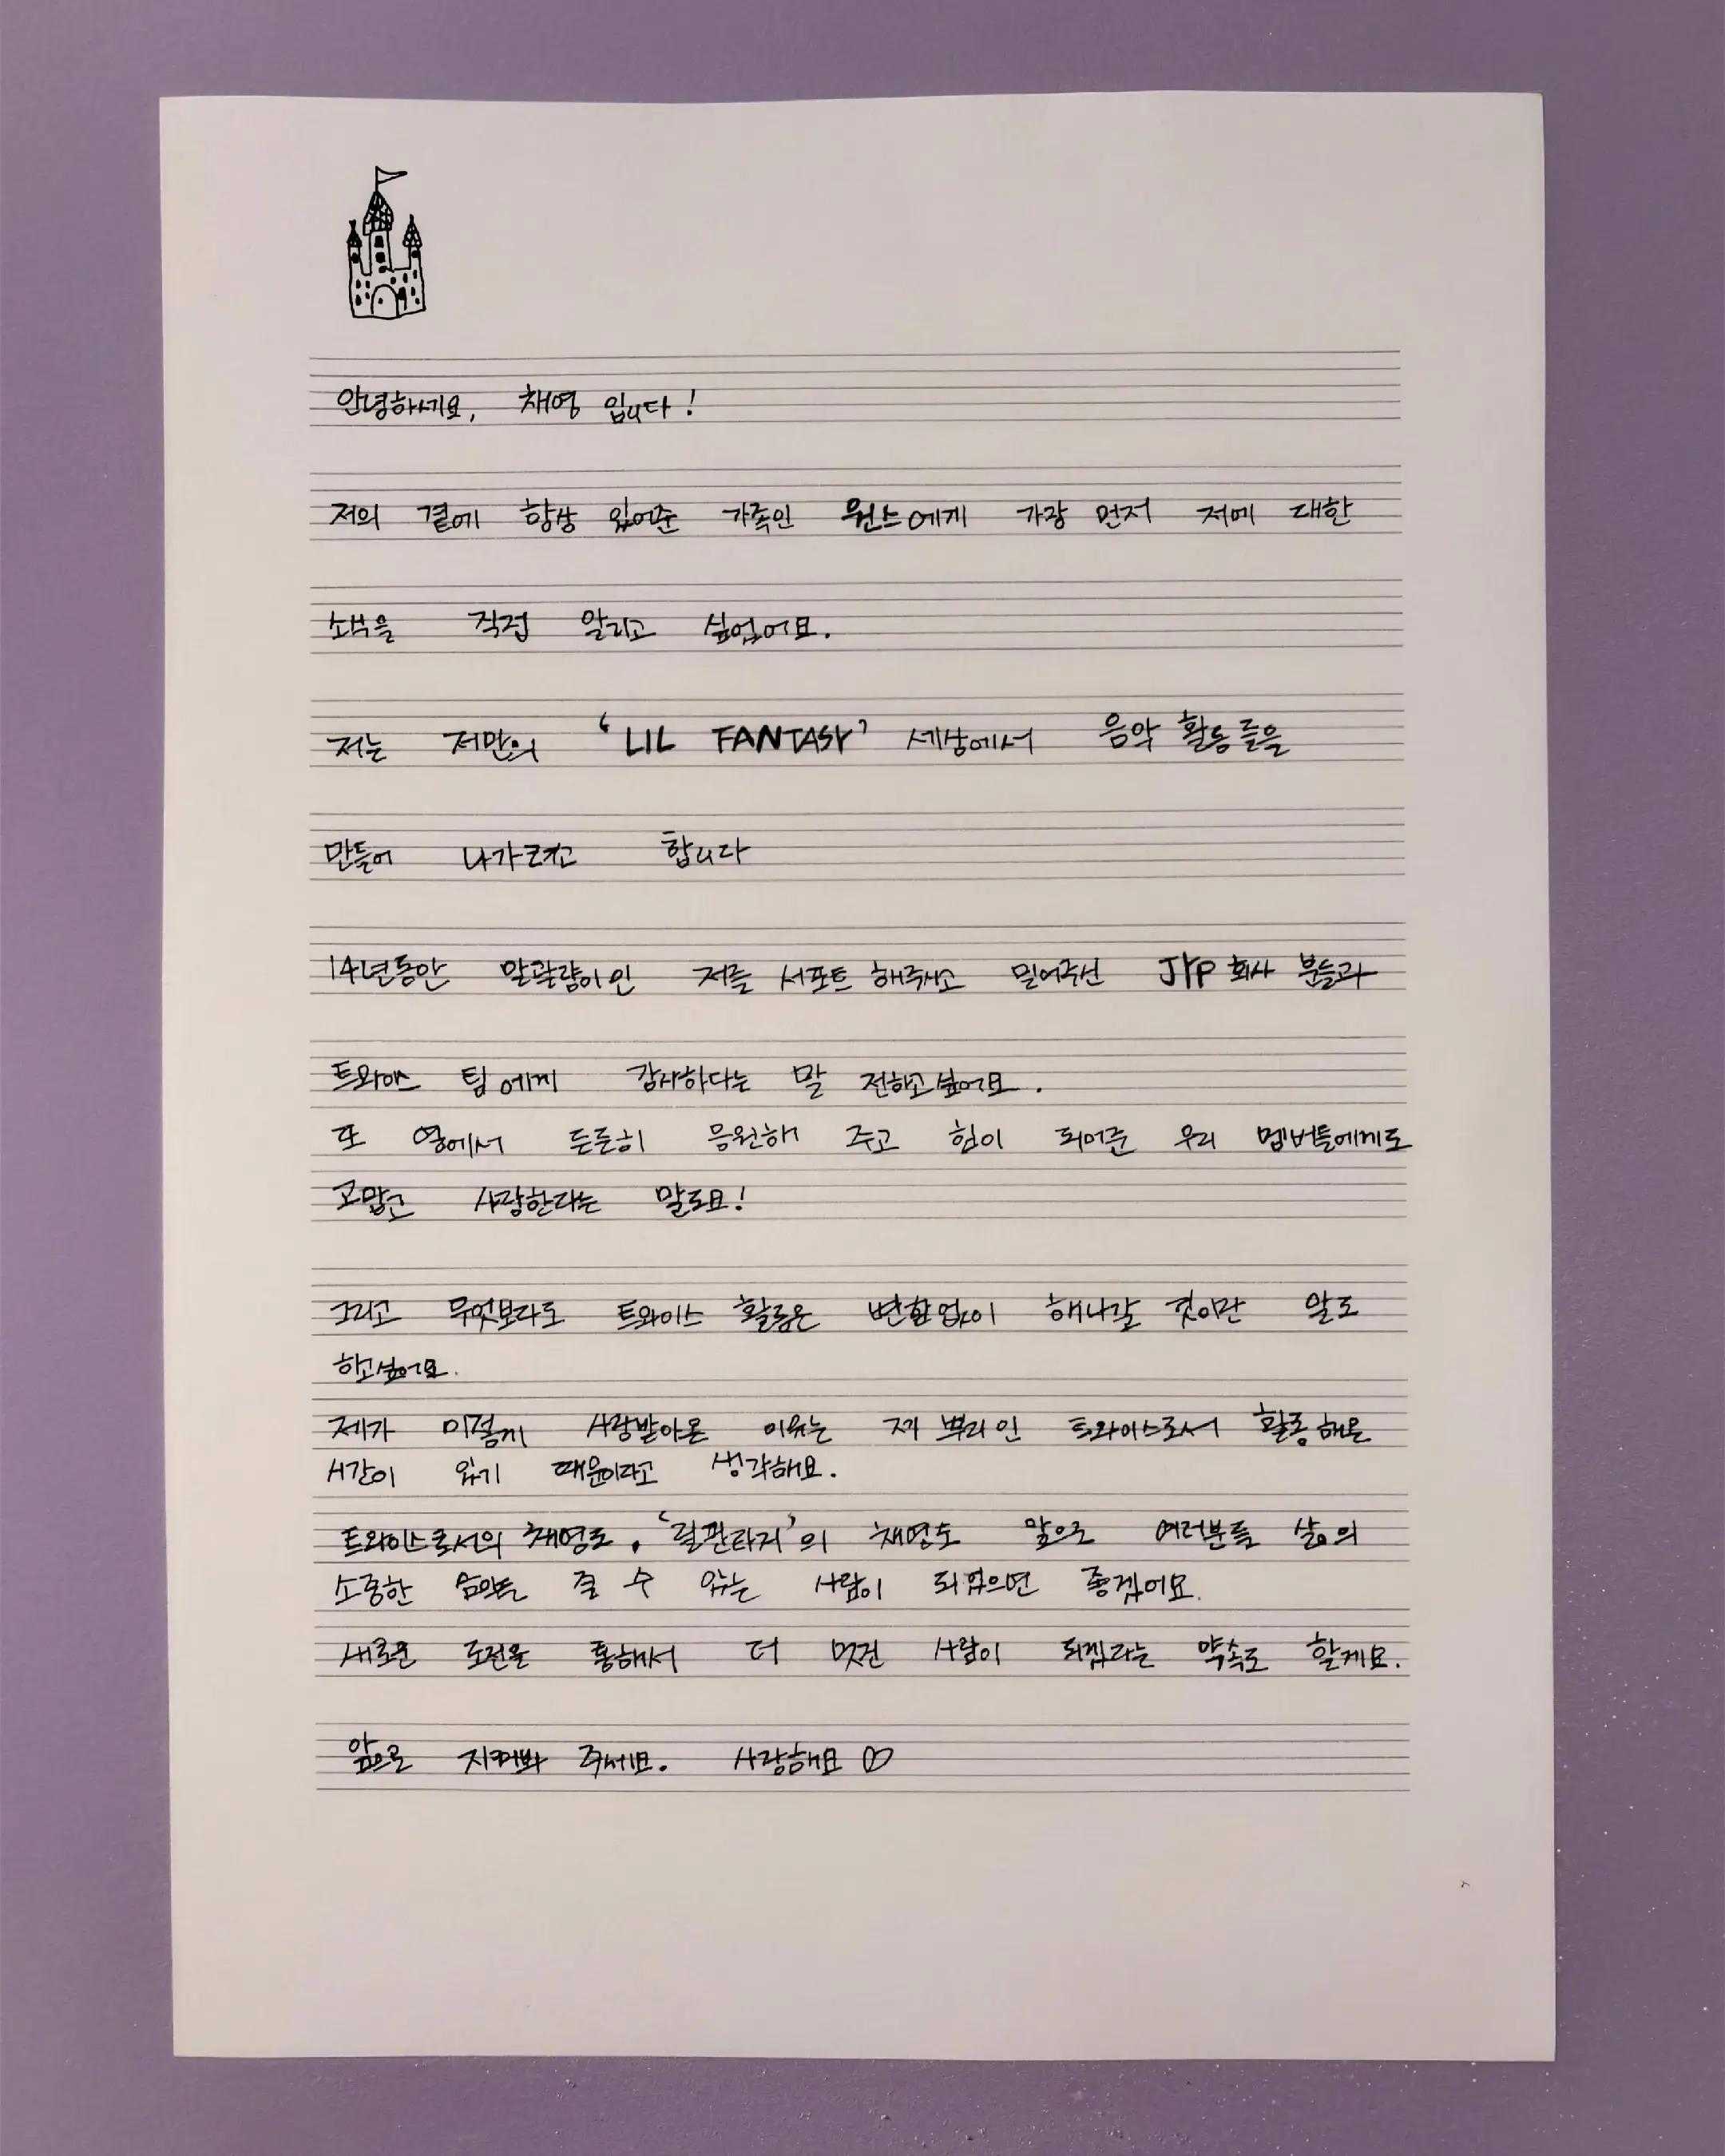 안녕하세요, 채영 입니다!
저의 곁에 항상 있어준 가족인 원스에게 가장 먼저 저에 대한
소식을 직접 알리고 싶었어요.
저는 저만의 'LIL FANTASY' 세상에서 음악 활동들을
만들어 나가려고 합니다
14년동안 말괄량이인 저를 서포트 해주시고 밀어주신 JYP 회사 분들과
트와이스 팀에게 감사하다는 말 전하고싶어요.
또 옆에서 든든히 응원해 주고 힘이 되어준 우리 멤버들에게도
고맙고 사랑한다는 말도요!
그리고 무엇보다도 트와이스 활동은 변함없이 해나갈 것이란 말도
하고싶어요.
제가 이렇게 사랑받아온 이유는 제 뿌리인 트와이스로서 활동해온
시간이 있기 때문이라고 생각해요.
트와이스로서의 채영도, '릴판타지'의 채영도 앞으로 여러분들 삶의
소중한 줄 수 있는 사람이 되었으면 좋겠어요.
새로운 도전을 통해서 더 멋진 사람이 되겠다는 약속도 할게요.
앞으로 지켜봐 주세요. 사랑해요 ♡